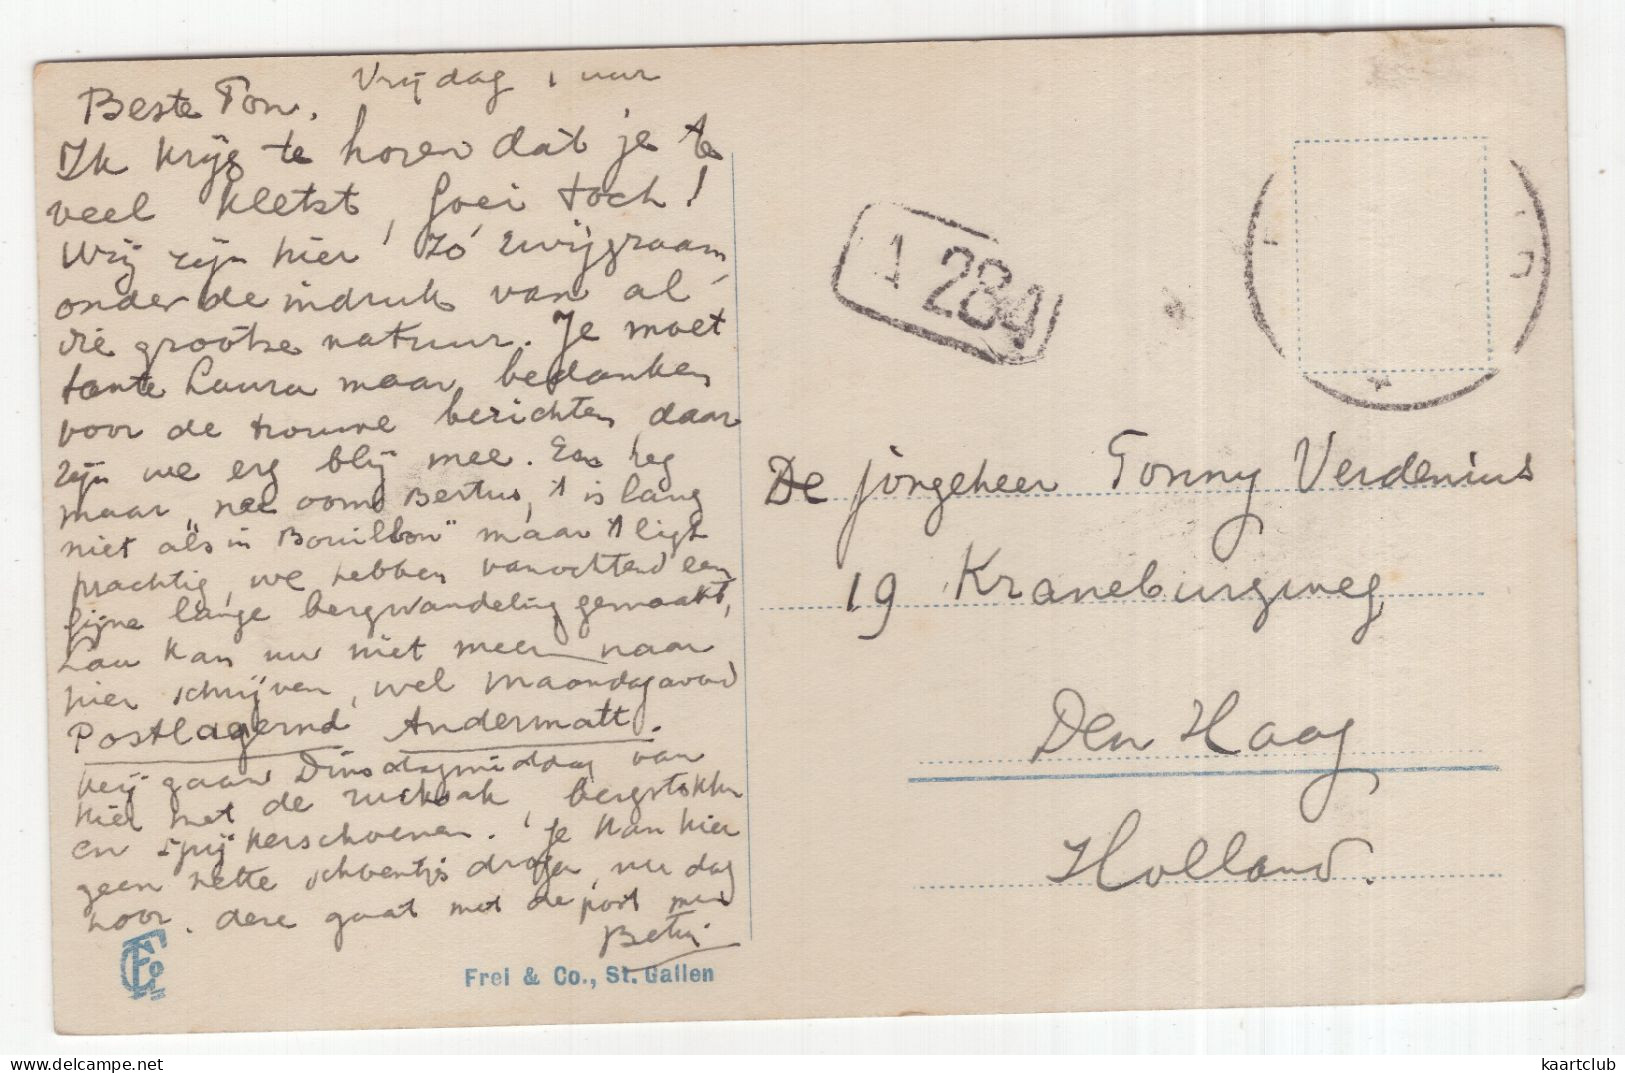 Vrijdag 1 uur
Beste Ton.
Ik krijg te horen dat je te
veel kletst, foei toch!
Wij zijn hier zó zwijgzaam,
onder de indruk van al
die grootse natuur. Je moet
tante Laura maar bedanken
voor de trouwe berichten, daar
zijn we erg blij mee. Een heg
maar nee oome Bertus, 't is lang
niet "als in Bouillon" maar 't ligt
prachtig, we hebben vanochtend een
fijne lange bergwandeling gemaakt,
Lau kan nu niet meer naar
hier schrijven, wel Maandagavond
Postlagernd Andermatt.
Wij gaan Dinsdagmiddag van
hier met de rucksak, bergstokken
en spijkerschoenen. Je kan hier
geen nette schoentjes dragen, nu dag
hoor. deze gaat met de post mee
Betsy
Frei & Co., St. Gallen
1 284
De jongeheer Tonny Verdenius
19 Kraneburgweg
Den Haag
Holland.
kaartclub